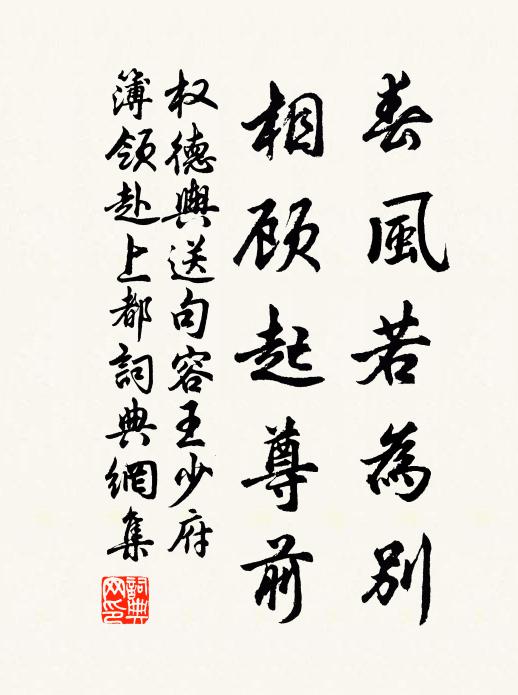 春風若為別
相顾起尊前
权德輿送句容王少府
簿領赴上都詞典網集
詞典網印